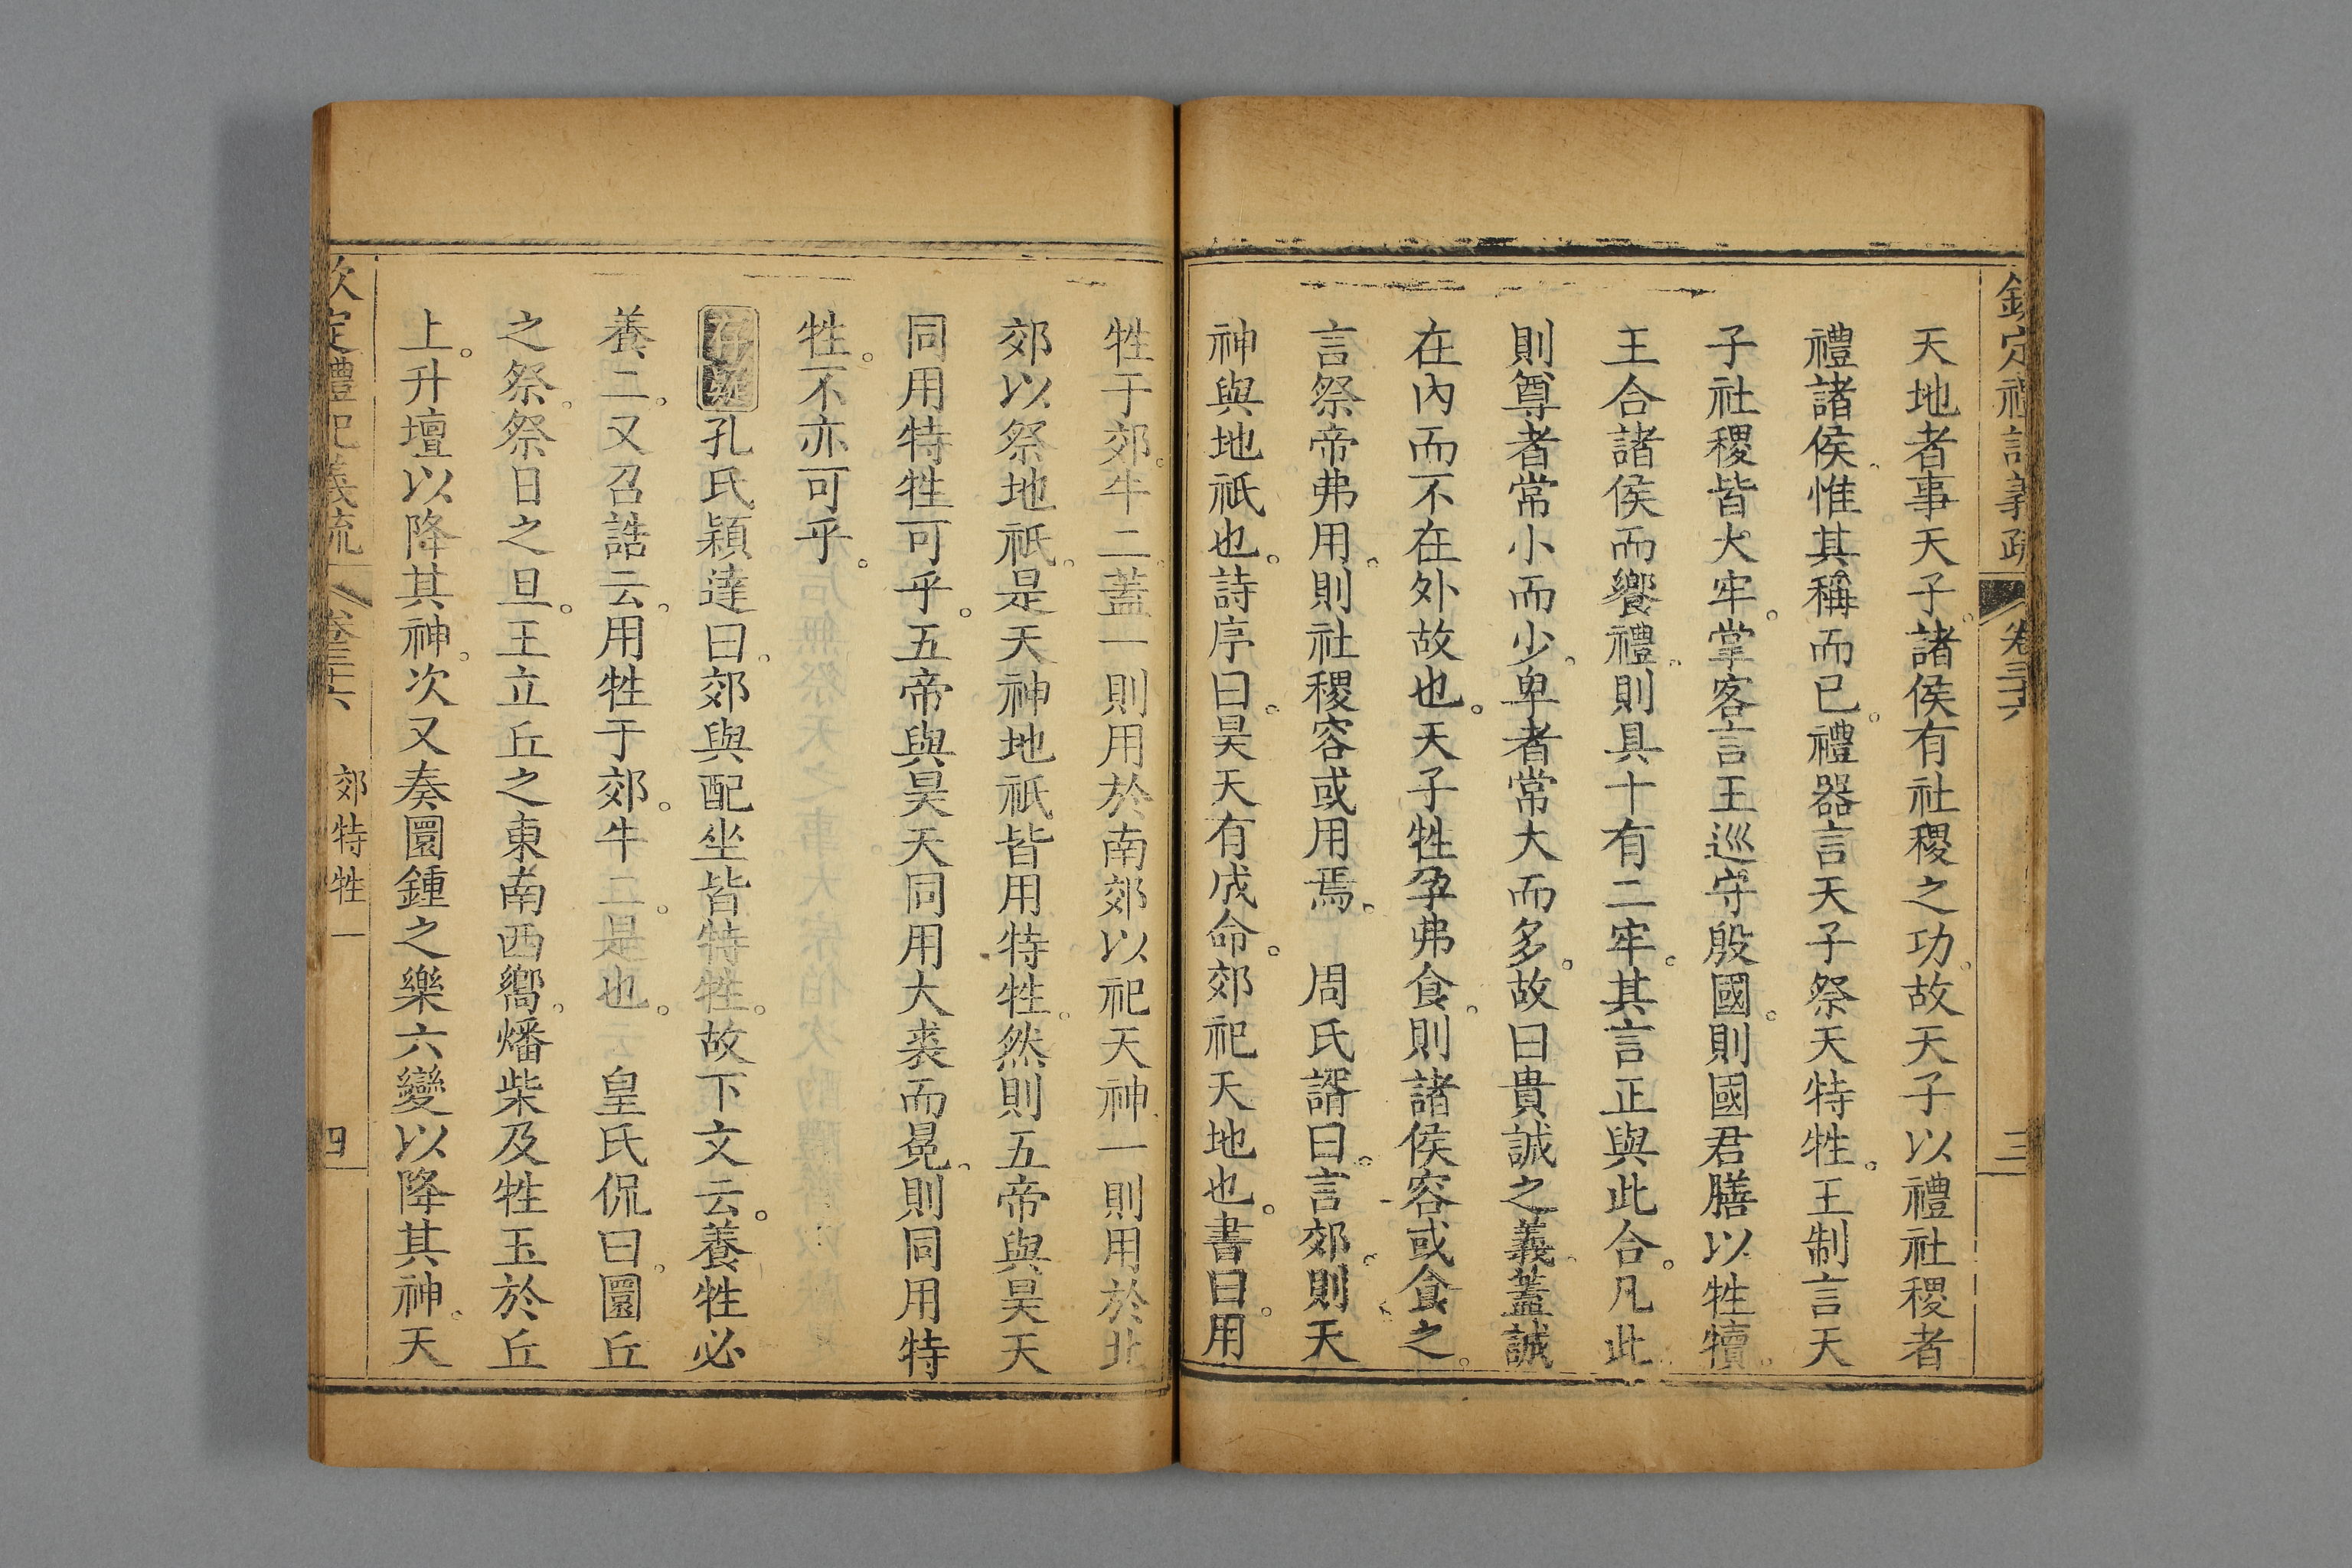 欽定禮記義疏 卷三十六 三
天地者事天子。諸侯有社稷之功。故天子以禮社稷者
禮諸侯。惟其稱而已。禮器言天子祭天特牲。王制言天
子社稷皆大牢。掌客言王巡守殷國。則國君膳以牲犢。
王合諸侯而饗禮。則具十有二牢。其言正與此合。凡此
則尊者常小而少。卑者常大而多。故曰貴誠之義。蓋誠
在內而不在外故也。天子牲孕弗食。則諸侯容或食之。
言祭帝弗用。則社稷容或用焉。 周氏諝曰。言郊。則天
神與地祇也。詩序曰。昊天有成命。郊祀天地也。書曰。用
牲于郊。牛二。蓋一則用於南郊以祀天神。一則用於北
郊以祭地祇。是天神地祇皆用特牲。然則五帝與昊天
同用特牲可乎。五帝與昊天同用大裘而冕。則同用特
牲。不亦可乎。
存疑 孔氏穎達曰。郊與配坐皆特牲。故下文云。養牲必
養二。又召誥云。用牲于郊。牛二。是也。 皇氏侃曰。圜丘
之祭。祭日之旦。王立丘之東南西嚮。燔柴及牲玉於丘
上。升壇以降其神。次又奏圜鍾之樂六變以降其神。天
欽定禮記義疏 卷三十六 郊特牲一 四